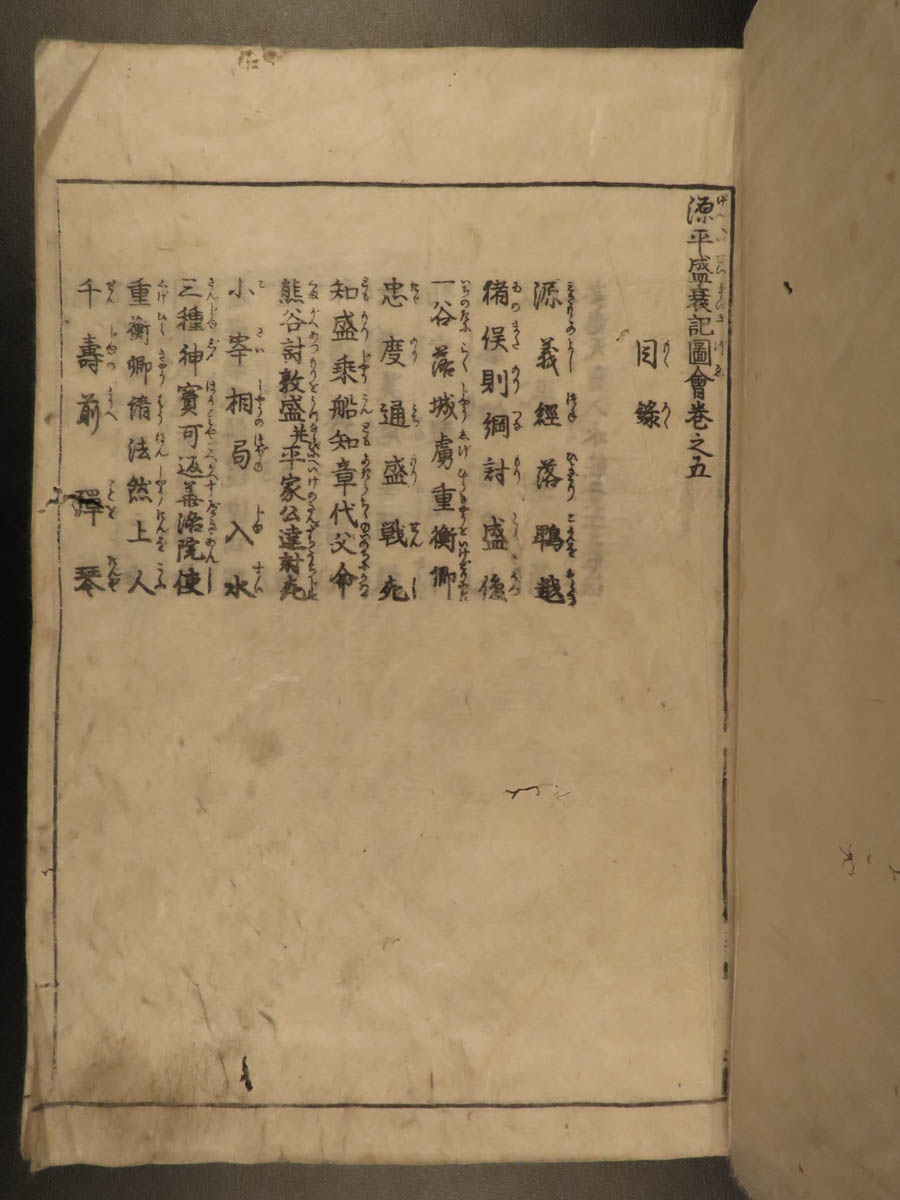 源平盛衰記圖會巻之五
目錄
源義經落鵯越
猪俣則綱討盛俊
一谷落城虜重衡卿
忠度通盛戦死
知盛乗船知章代父命
熊谷討敦盛并平家公達討死
小宰相局入水
三種神寳可返善治院使
重衡卿請法然上人
千壽前彈琴